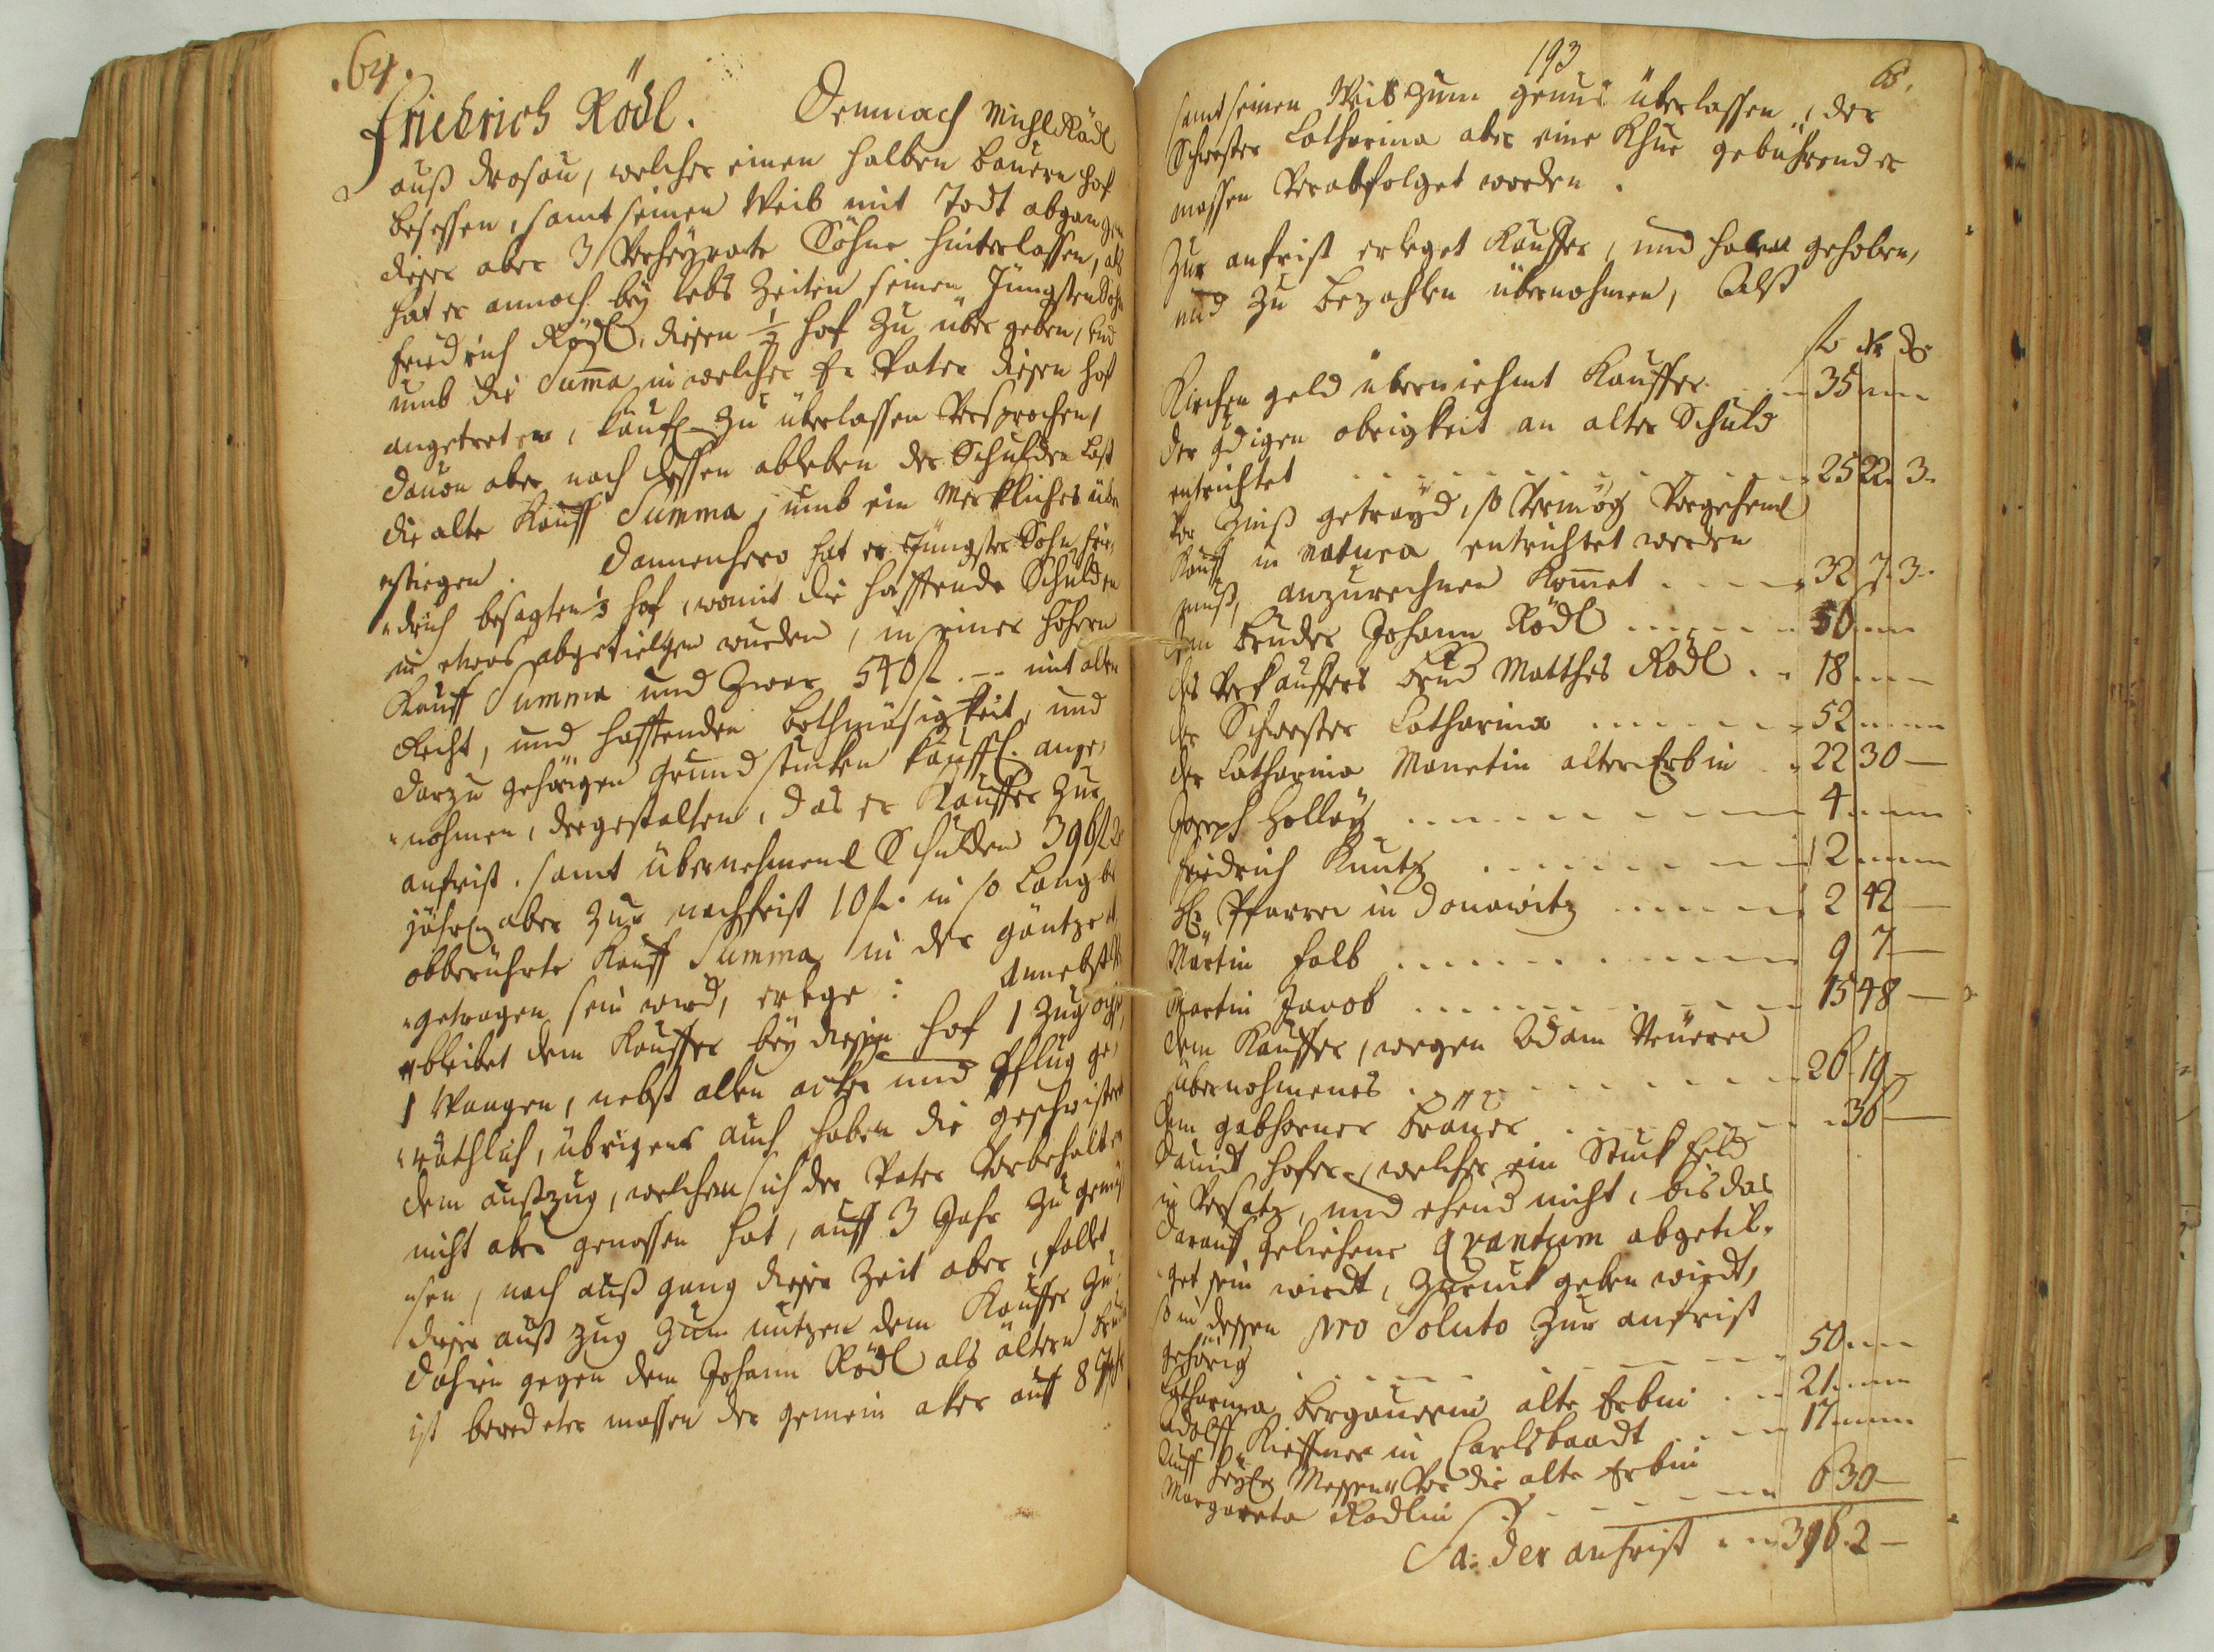 .64.
Friedrich Rödl. Demnach Michl Rödl
auß Drosau, welcher einen halben Bauern hof
besessen, samt seinen Weib mit Todt abgangen
dieser aber 3 Verheyrate Söhne hinterlassen, als
hat er annoch bey lebs Zeiten seinen Jüngsten Sohn
Friedrich Rödl, diesen 1/2 hof zu über geben, und
umb die Summa in welcher Er Vater diesen hof
angetreten, käufl. zu überlassen Versprochen,
davon aber nach dessen ableben der Schulden Last
die alte Kauff Summa, umb ein Merkliches über
„stiegen. Dannenhero hat er Jüngster Sohn Frie„
„drich besagten 1/2 hof, womit die hafftende Schulden
in etwas abgetielget wurden, in einer höhern
Kauff Summa und Zwar 540 fl. -- mit allen
Recht, und hafftenden Bothmäsigkeit, und
darzu gehörigen Grundstücken käuffl. ange„
„nohmen, dergestalten, das er Kauffer Zur
anfrist, samt übernehmend Schulden 396 fl 2
jährl. aber Zur nachfrist 10 fl. in so Lang bis
obberührte Kauff Summa in der gäntze ab
„getragen sein wird, erlege: Annebst
verbleibet dem Kauffer bey diesem hof 1 Zug ochs,
1 Waagen, nebst allen acker und Pflug ge„
„räthlich, übrigens auch haben die geschwister
dem außzug, welchen sich der Vater Vorbehalten
nicht aber genossen hat, auff 3 Jahr zu genüs
„sen, nach auß gang dieser Zeit aber, fallet
dieser auß zug zum nutzen dem Kauffer zu,
dahin gegen dem Johann Rödl als ältern Bruder
ist beredeter massen der gemein aker auff 8 Jahr
193
65.
samt seinen Weib zum genus überlassen, der
Schwester Catharina aber eine Khue gebührender
massen Verabfolget worden.
Zur anfrist erleget Kauffer, und haben gehoben,
und zu bezahlen übernohmen, Alß
fl. kr. d.
Kirchen geld übernehmt Kauffer 35
der gdigen obrigkeit an alter Schuld
entrichtet 25 22. 3.
Vor Zinß getrayd, so Vermög Vorgehend
Kauff in natura entrichtet werden
muß, anzurechnen Kommet 32 7. 3.
dem Bruder Johann Rödl 50
des Verkauffers Brud Matthes Rödl 18
der Schwester Catharina 52
der Catharina Manetin alten Erbin 22 30
Joseph Holley 4
Friedrich Kuntz 12
H: Pfarrer in Donawitz 2 42
Martin Falb 9 7
Martin Jacob 15 48
dem Kauffer, wegen Adam Neüerer
übernohmenes 26 19
dem gabhorner Bräuer 36
David hofer, welcher ein Stuck Feld
in Versatz, und ehend nicht, bis das
darauf geliehene Quantum abgetil„
„get sein wirdt, Zuruck geben wirdt,
so in dessen pro Soluto Zur anfrist
gehörig 50
Catharina Bergauerin alte Erbin 21
Adolff Kieffner in Carlsbaadt 17
Auff heyl. Messen Vor die alte Erbin
Margareta Rödlin 6 30
Sa: der anfrist 396. 2